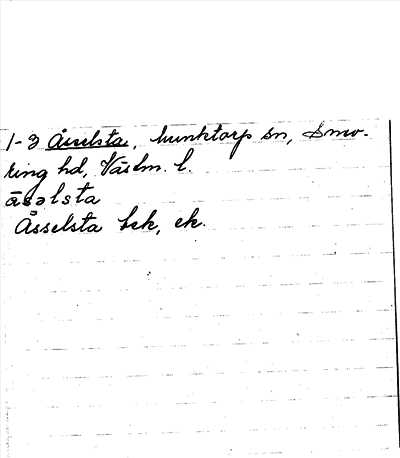 1-3 Åsselsta, Munktorp sn, Snev-
ringe hd, Västm. l.
āsəlsta
Åsselsta bek, ek.